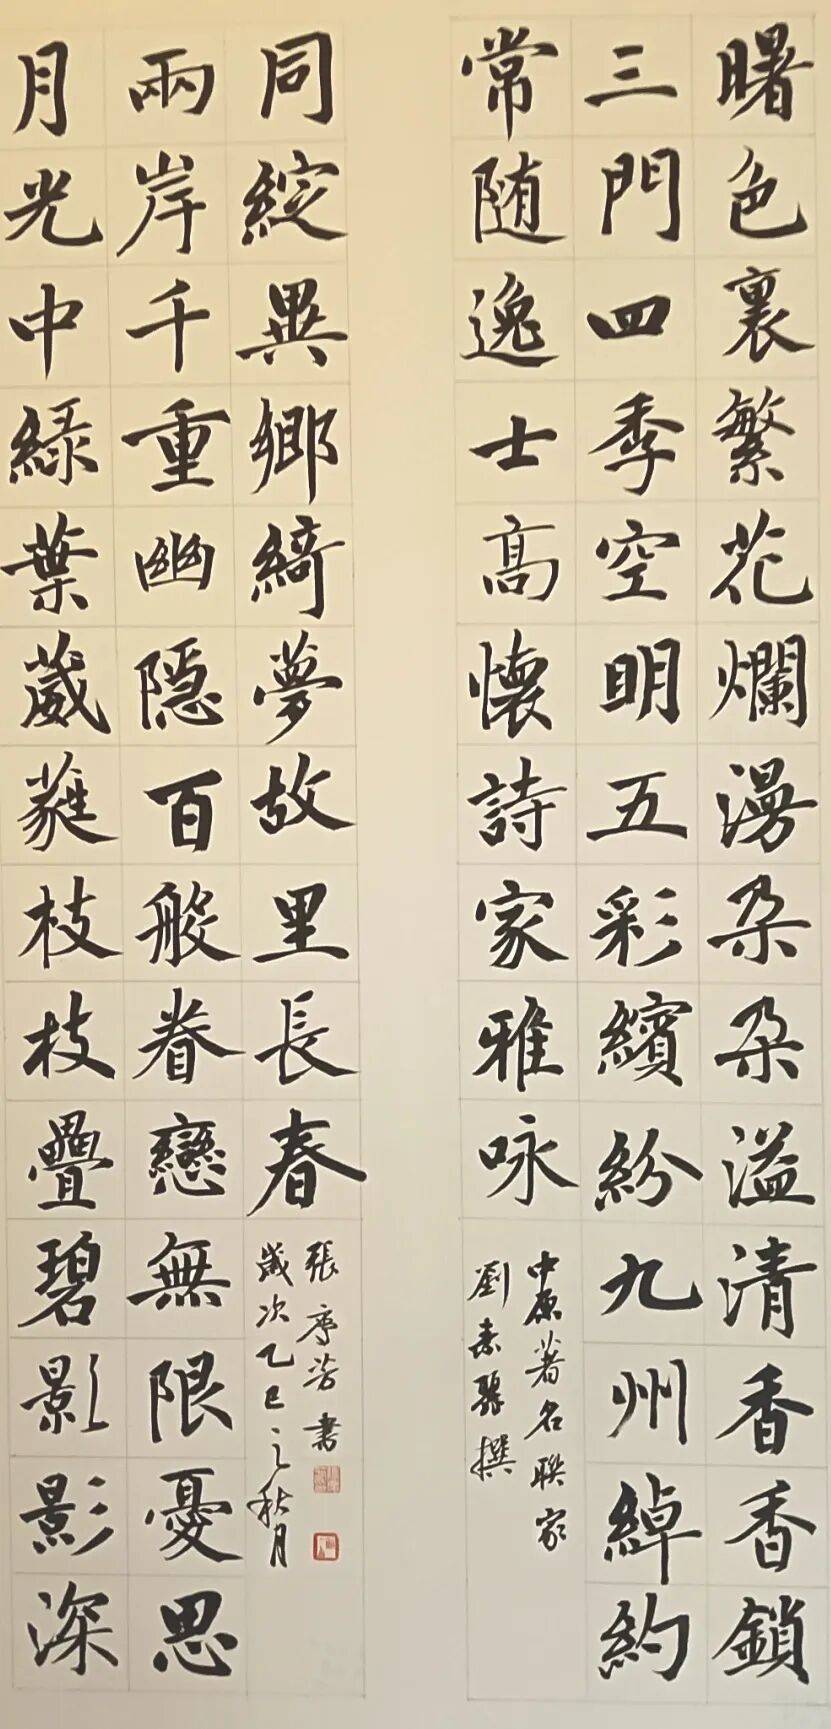 曙色裏繁花爛漫朵朵溢清香香鎖
三門四季空明五彩繽紛九州綽約
常随逸士高懷詩家雅咏
中原著名聯家
劉素撰
月光中緑葉葳蕤枝枝疊碧影影深
兩岸千重幽隐百般眷戀無限憂思
同綻異鄉綺夢故里長春
歲次乙巳之秋月
張序芳書